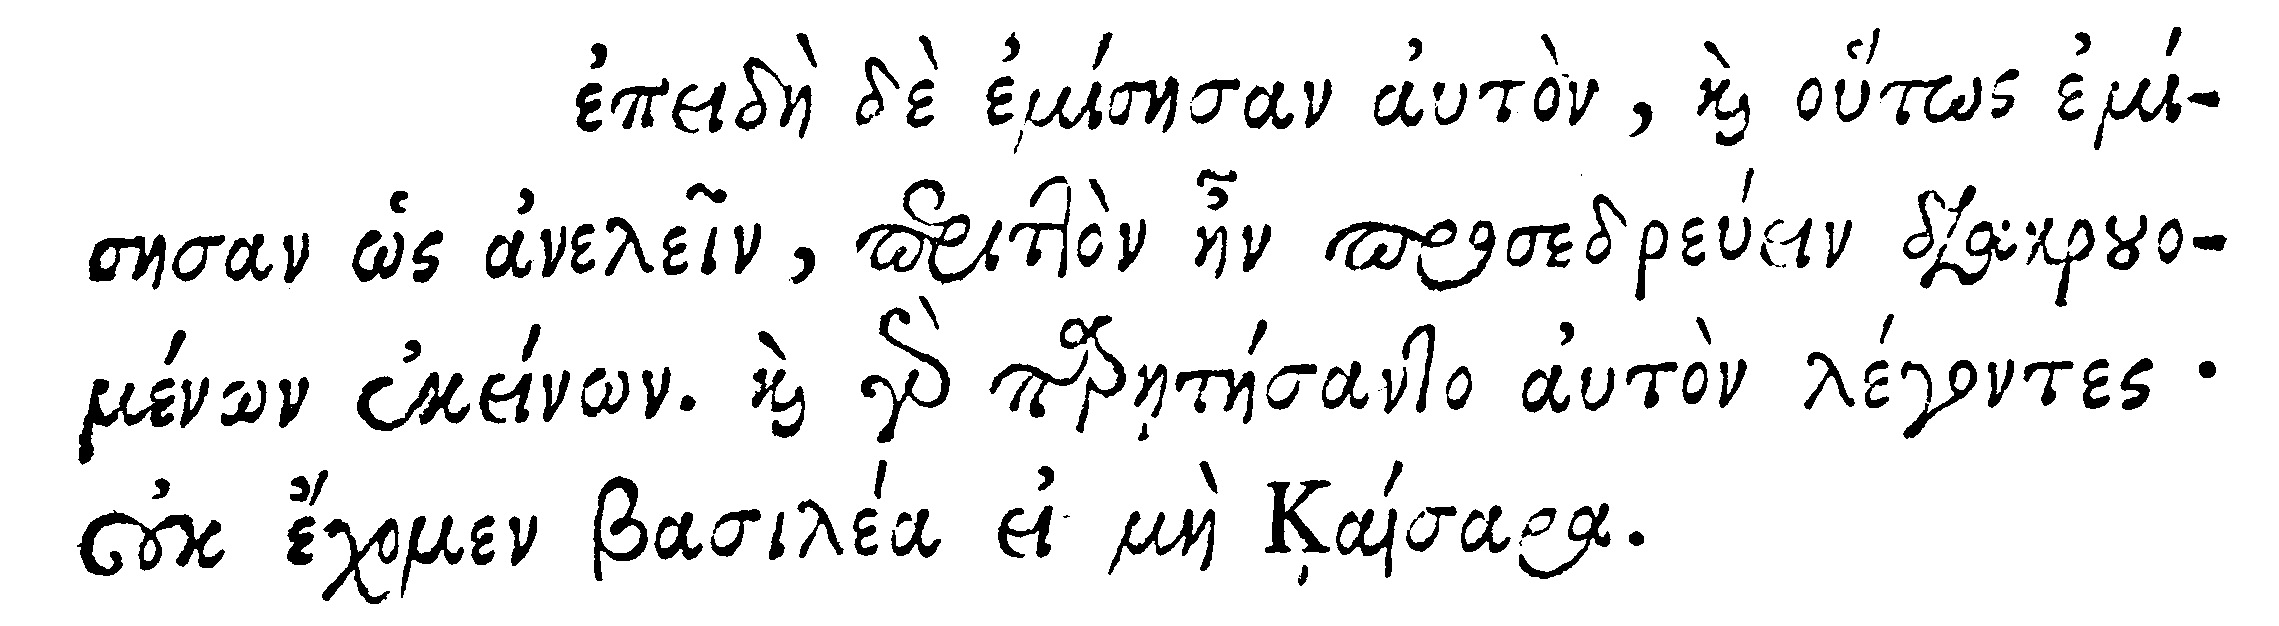 ἐπειδὴ δὲ ἐμίσησαν αὐτὸν, καὶ οὕτως ἐμί-
σησαν ὡς ἀνελεῖν, περιττὸν ἦν προσεδρεύειν διακρουο-
μένων ἐκείνων. καὶ γὰρ παρῃτήσαντο αὐτὸν λέγοντες ·
οὐκ ἔχομεν βασιλέα εἰ μὴ Καίσαρα.